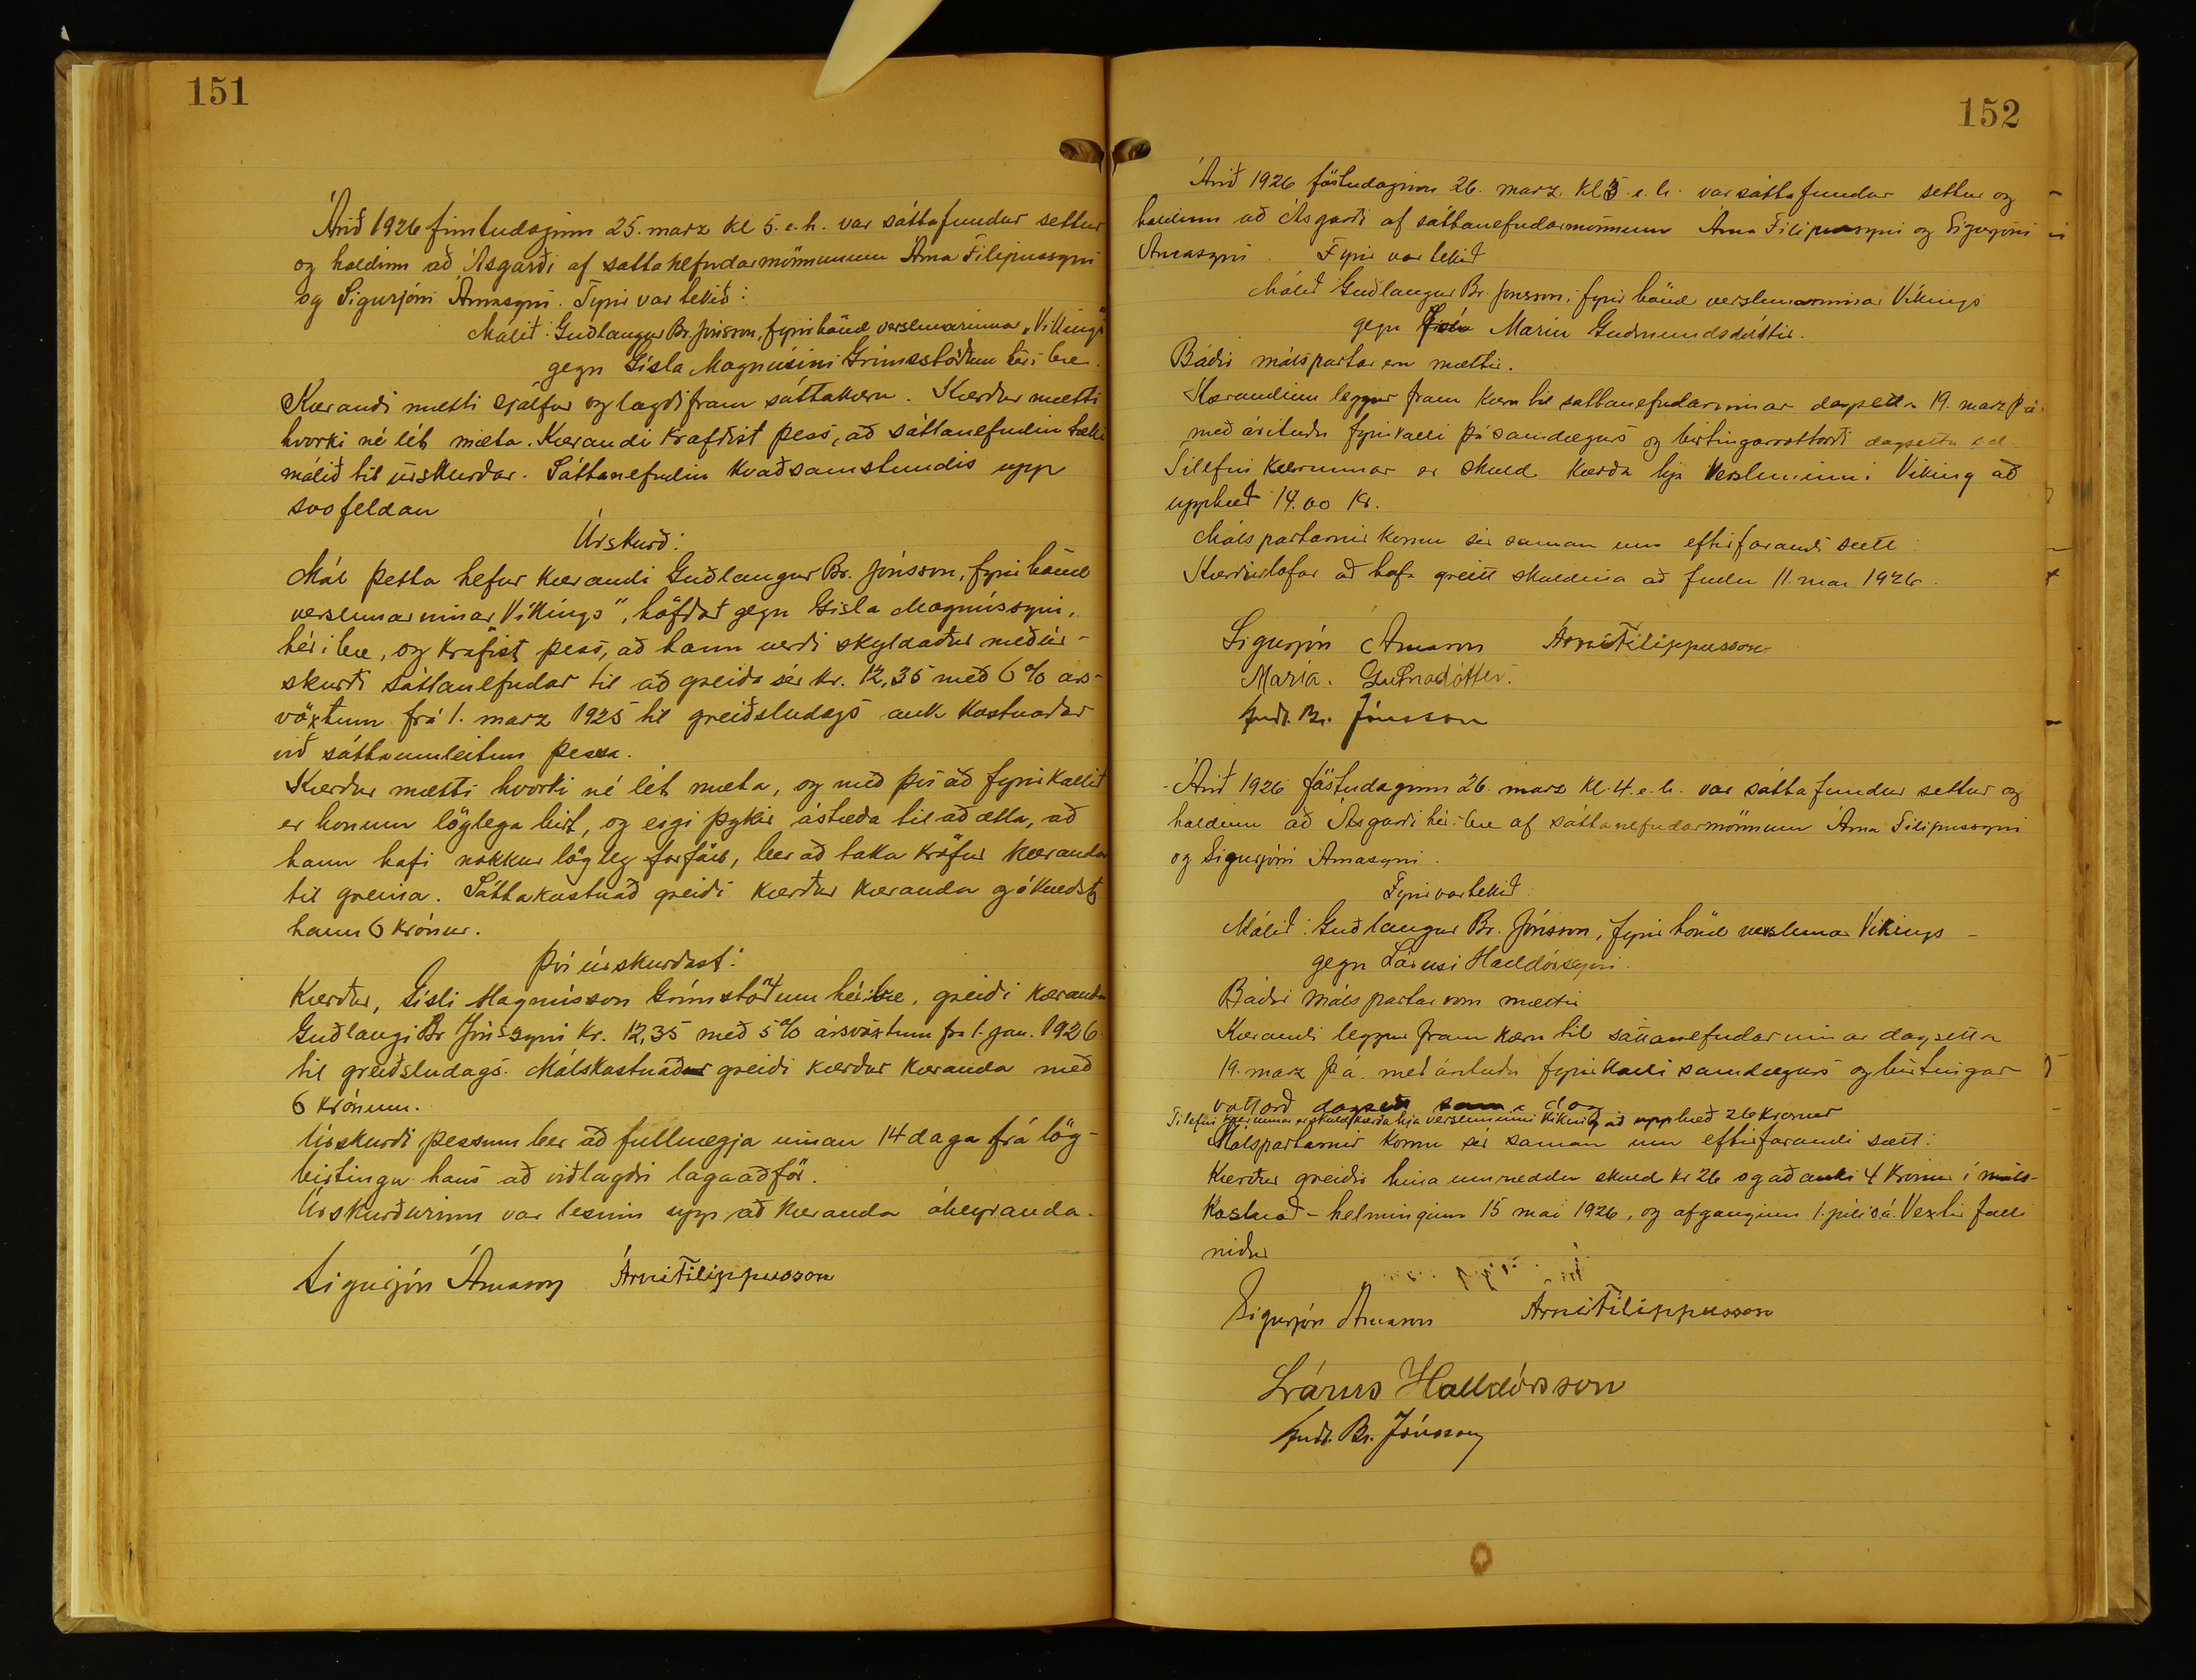 151
Árið 1926 fimtudaginn 25. marz kl 5. e.h. var sáttafundur settur
og haldinn að Ásgarði af sáttanefndarmönnunum Árna Filipussyni
og Sigurjóni Árnasyni. Fyrir var tekið:
Málið: Guðlaugur Br. Jónsson, fyrir hönd verslunarinnar „Víkings"
gegn Gísla Magnússini Grímsstöðum hér í bæ.
Kærandi mætti sjálfur og lagði fram sáttakæru. Kærður mætti
hvorki né lét mæta. Kærandi krafðist þess, að sáttanefndin tæki
málið til úrskurðar. Sáttanefndin kvað samstundis upp
svofeldan
Úrskurð:
Mál þetta hefur kærandi Guðlaugur Br. Jónsson, fyrir hönd
verslunarinnar Víkings", höfðað gegn Gísla Magnússyni,
hér í bæ, og krafist þess, að hann verði skyldaður með úr-
skurði sáttanefndar til að greiða sér kr. 12,35 með 6% árs-
vöxtum frá 1. marz 1925 til greiðsludags auk kostnaðar
við sáttaumleitun þessa.
Kærður mætti hvorki né lét mæta, og með því að fyrirkallið
er honum löglega birt, og eigi þykir ástæða til að ætla, að
hann hafi nokkur lögleg forföll, ber að taka kröfur kæranda
til greina. Sáttakostnað greiði kærður kæranda og ákveðst
hann 6 krónur.
Því úrskurðast:
Kærður, Gísli Magnússon Grímstöðum hér í bæ, greiði kæranda
Guðlaugi Br Jónssyni kr. 12,35 með 5% ársvöxtum frá 1. jan. 1926
til greiðsludags. Málskostnaður greiði kærður kæranda með
6 krónum.
Úrskurði þessum ber að fullnægja innan 14 daga frá lög-
birtingu hans að viðlagðri lagaaðför.
Úrskurðurinn var lesinn upp að kæranda áheyranda.
Sigurjón Árnason Árni Filippusson
152
Árið 1926 föstudaginn 26. marz. kl 3 e.h. var sáttafundur settur og
haldinn að Ásgarði af sáttanefndarmönnum Árna Filipussyni og Sigurjóni
Árnasyni. Fyrir var tekið
Málið Guðlaugur Br. Jónsson, fyrir hönd verslunarinnar Víkings
gegn Maríu Guðmundsdóttir.
Báðir málspartar eru mættir.
Kærandinn leggur fram kæru til sáttanefndarinnar dagsetta 19. marz þ.á.
með árituðu fyrirkalli þá samdægurs og birtingarvottorði dagsettu s.d.
Tilefni kærunnar er skuld kærða hjá Versluninni Víking að
upphæð 14.00 Kr.
Málspartarnir komu sér saman um eftirfarandi sætt:
Kærður lofar að hafa greitt skuldina að fullu 11. maí 1926.
Sigurjón Árnason Árni Filippusson
María. Guðmadóttir.
Guðl. Br. Jónsson
Árið 1926 föstudaginn 26. marz kl. 4. e.h. var sáttafundur settur og
haldinn að Ásgarði hér í bæ af sáttanefndarmönnum Árna Filipussyni
og Sigurjóni Árnasyni.
Fyrir var tekið:
Málið: Guðlaugur Br. Jónsson, fyrir hönd verslunar Víkings –
gegn Lárusi Halldórssyni.
Báðir málspartar voru mættir
Kærandi leggur fram kæru til sáttanefndarinnar dagsetta
19. marz þ.á. með árituðu fyrirkalli samdægurs og birtingar-
vottorð dagsett sama dag
Tilefni kærunnar er skuld kærða hjá versluninni Víking að upphæð 26 krónur
Málspartarnir komu sér saman um eftirfarandi sætt:
Kærður greiðir hina umræddu skuld kr 26 og að auki 4 krónur í máls-
kostnað – helminginn 15 maí 1926, og afganginn 1. júlí s.á. Vextir falli
niður
Sigurjón Árnason Árni Filippusson
Lárus Halldórsson
Guðl. Br. Jónsson